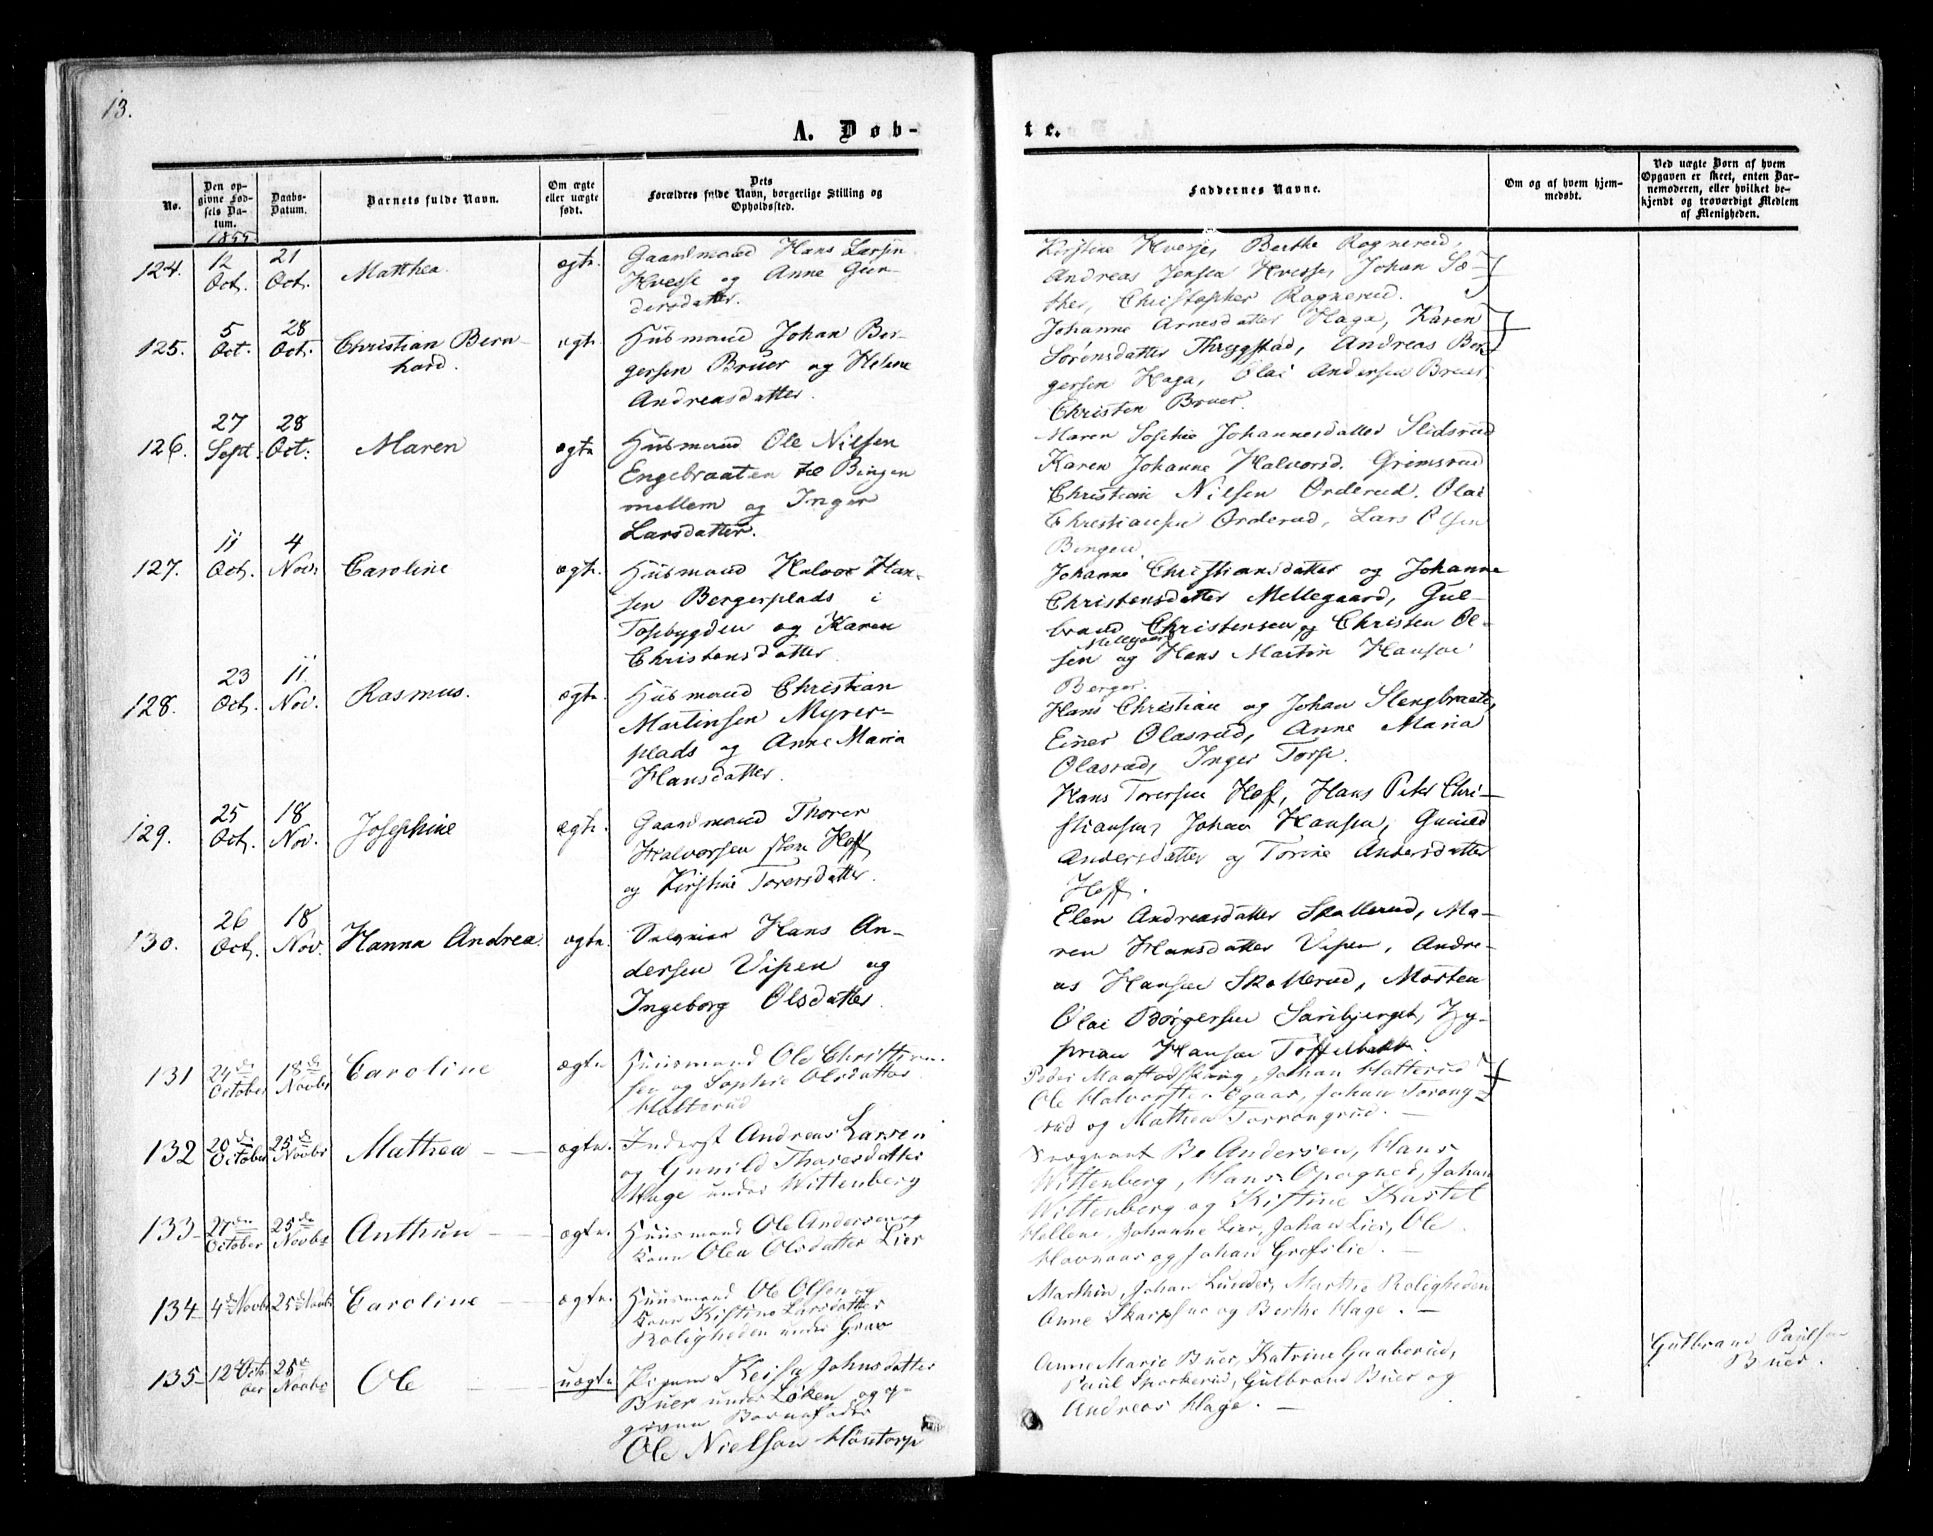 13.
A. Døb-
te.
No.
Den op-
givne Fød-
sels Da-
tum.
Daabs-
Datum.
Barnets fulde Navn.
Om ægte
eller uægte
født.
Dets
Forældres fulde Navn, borgerlige Stilling og
Opholdssted.
Faddernes Navne.
Om og af hvem hjem-
medøbt.
Ved uægte Børn af hvem
Opgaven er skeet, enten Bar-
nemoderen, eller hvilket be-
kjendt og troværdigt Medlem
af Menigheden.
1855
124. 12 Oct. 21 Oct. Matthea. ægte.
Gaardmand Hans Larsen
Kvesse og Anne Gun-
dersdatter.
Kirstine Kvesje, Berthe Rognerud,
Andreas Jensen Kvesse, Johan Sæ-
ther, Christopher Rognerud.
125. 5 Oct. 28 Oct. Christian Bern-
hard. ægte.
Husmand Johan Ber-
gersen Bruer og Helene
Andreasdatter.
Johanne Arnesdatter Haga, Karen
Sørensdatter Thrygstad, Andreas Ber-
gersen Haga, Olai Andersen Bruer
Christen Bruer.
126. 27 Sept. 28 Oct. Maren ægte
Husmand Ole Nilsen
Engebraaten til Bingen
mellem og Inger
Larsdatter.
Maren Sophie Johannesdatter Slidsrud
Karen Johanne Halvorsd. Grimsrud
Christian Nilsen Orderud. Olai
Christiansen Orderud, Lars Olsen
Bingen.
127. 11 Oct. 4 Nov. Caroline ægte.
Husmand Halvor Han-
sen Bergerplads i
Tosebygden og Karen
Christensdatter.
Johanne Christiansdatter og Johanne
Christensdatter Mellegaard, Gul-
brand Christensen og Christen Ol-
Mellegaard
sen og Hans Martin Hansen
Berger.
128. 23 Oct. 11 Nov. Rasmus. ægte.
Husmand Christian
Martinsen Myrer-
plads og Anne Maria
Hansdatter.
Hans Christian og Johan Slengbraate,
Einer Olasrud, Anne Maria
Olasrud, Inger Torp.
129. 25 Oct. 18 Nov. Josephine ægte.
Gaardmand Thorer
Halvorsen Hoff
og Kirstine Torersdatter.
Hans Torersen Hoff, Hans Peter Chri-
stiansen, Johan Hansen, Gunild
Andersdatter og Torine Andersdatter
Hoff.
130. 26 Oct. 18 Nov. Hanna Andrea. ægte.
Hans An-
dersen Vipen og
Ingeborg Olsdatter.
Elen Andreasdatter Skallerud, Ma-
ren Hansdatter Vipen, Andre-
as Hansen Skallerud, Morten
Olai Børgersen Saribjerget, Zy-
prian Hansen Toffelbakk.
131 24de October 18de Novbr Caroline ægte.
Huusmand Ole Christian-
sen og Sophie Olsdatter
Hatterud
Peder Johan Hatterud
Ole Halvorsen Ogaar, Johan Torong-
rud og Mathea Torrongrud. —
132 20de October 25de Novbr Mathea — ægte.
Inderst Andreas Larsen
og Gunild Tharesdatter
Hage under Wittenberg
Bo Andersen, Hans
Wittenberg, Hans Opagned, Johan
Wittenberg og Kistine Kastel
133 — 27de October 25de Novbr Anthun — ægte.
Huusmand Ole Andersen og
Kone Olea Olsdatter Lier
Hellene, Johanne Lier, Johan Lier, Ole
Havnaas og Johan Grefslie. —
134 — 4de Novbr 25de Novbr Caroline — ægte.
Huusmand Ole Olsen og
Kone Kistine Larsdatter
Roligheden under Grav
Marthin, Johan Lunder, Marthe Roligheden
Anne Skarpsno og Berthe Hage. —
135 — 12 October 25de Novbr Ole — uægte
Pigen Keisa Johnsdatter
Buer under Løken og op-
given Barnefader
Ole Nielsen Høntorp
Anne Marie Buer, Katrine Gaaberud,
Paul Sparkerud, Gulbrand Buer og
Andreas Hage. —
Gulbrand Paulsen
Buer.